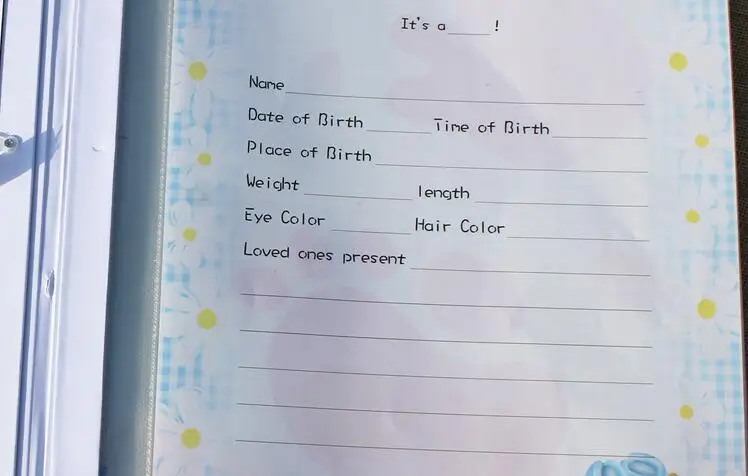 It's a_____!
Name
Date of Birth Time of Birth
Place of Birth
Weight length
Eye Color Hair Color
Loved ones present